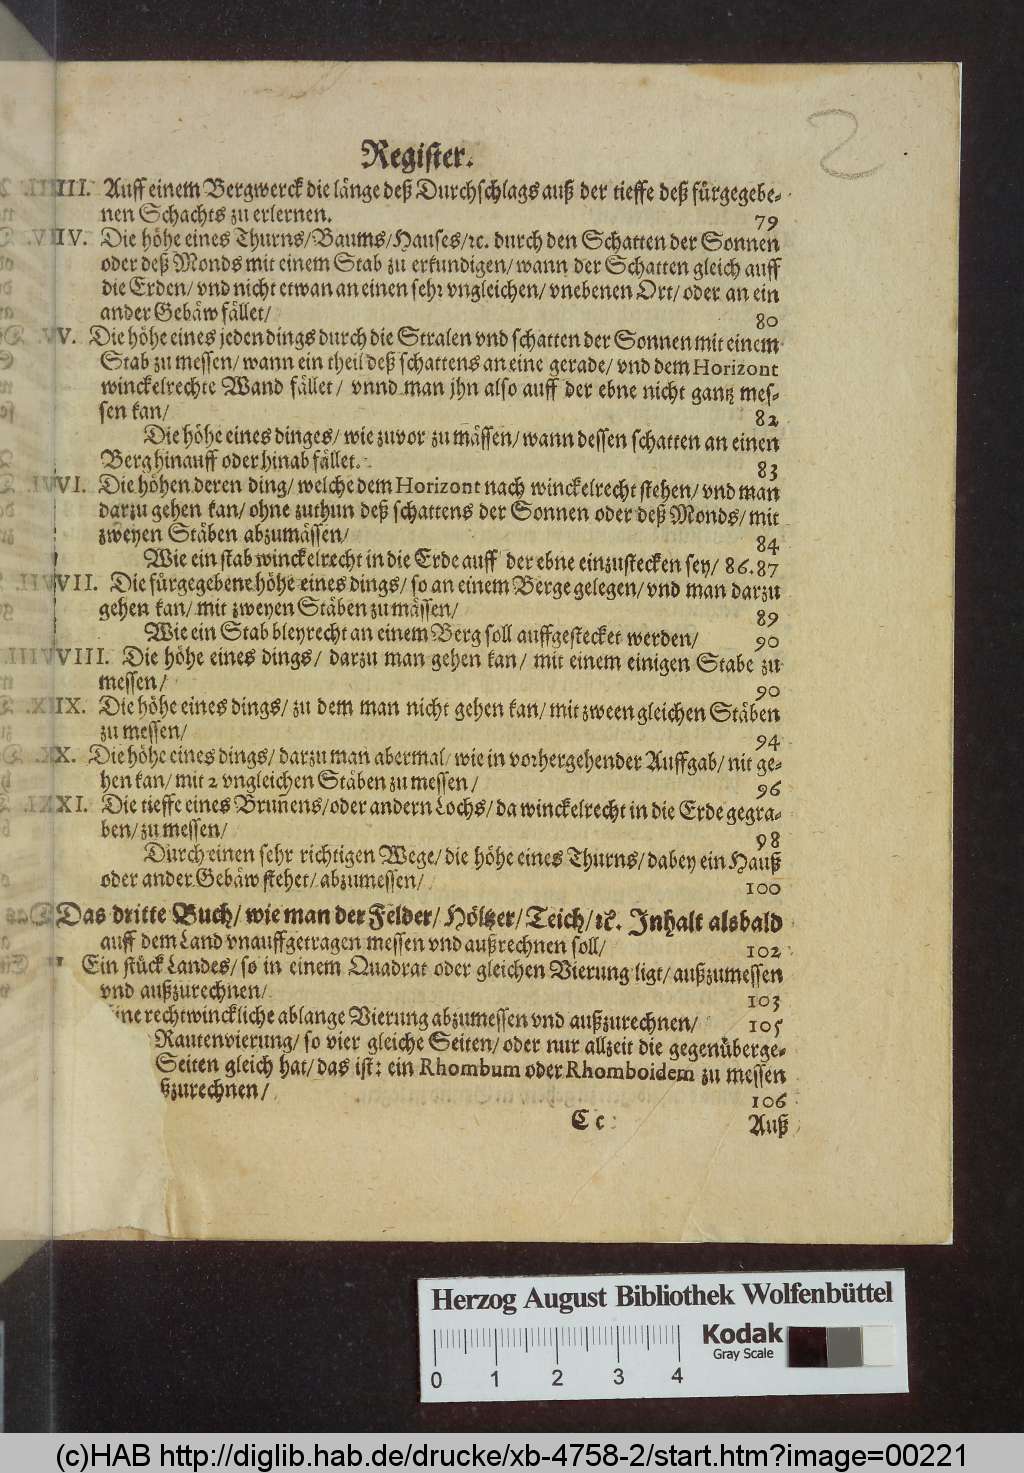 Register.
III. Auff einem Bergwerck die länge deß Durchschlags auß der tieffe deß fürgegebe-
nen Schachts zu erlernen. 79
IV. Die höhe eines Thurns/Baums/Hauses/ꝛc. durch den Schatten der Sonnen
oder deß Monds mit einem Stab zu erkundigen/ wann der Schatten gleich auff
die Erden/ vnd nicht etwan an einen sehr vngleichen/ vnebenen Ort/ oder an ein
ander Gebäw fället/ 80
V. Die höhe eines jeden dings durch die Stralen vnd schatten der Sonnen mit einem
Stab zu messen/ wann ein theil deß schattens an eine gerade/ vnd dem Horizont
winckelrechte Wand fället/ vnnd man jhn also auff der ebne nicht gantz mes-
sen kan/ 82
Die höhe eines dinges/ wie zuvor zu mässen/ wann dessen schatten an einen
Berg hinauff oder hinab fället. 83
VI. Die höhen deren ding/ welche dem Horizont nach winckelrecht stehen/ vnd man
darzu gehen kan/ ohne zuthun deß schattens der Sonnen oder deß Monds/ mit
zweyen Stäben abzumässen/ 84
Wie ein stab winckelrecht in die Erde auff der ebne einzustecken sey/ 86.87
VII. Die fürgegebene höhe eines dings/ so an einem Berge gelegen/ vnd man darzu
gehen kan/ mit zweyen Stäben zu mässen/ 89
Wie ein Stab bleyrecht an einem Berg soll auffgestecket werden/ 90
VIII. Die höhe eines dings/ darzu man gehen kan/ mit einem einigen Stabe zu
messen/ 90
IX. Die höhe eines dings/ zu dem man nicht gehen kan/ mit zween gleichen Stäben
zu messen/ 94
X. Die höhe eines dings/ darzu man abermal/ wie in vorhergehender Auffgab/ nit ge-
hen kan/ mit 2 vngleichen Stäben zu messen/ 96
XI. Die tieffe eines Brunens/ oder andern Lochs/ da winckelrecht in die Erde gegra-
ben/ zu messen/ 98
Durch einen sehr richtigen Wege/ die höhe eines Thurns/ dabey ein Hauß
oder ander Gebäw stehet/ abzumessen/ 100
Das dritte Buch/ wie man der Felder/ Höltzer/ Teich/ ꝛc. Inhalt alsbald
auff dem Land vnauffgetragen messen vnd außrechnen soll/ 102
Ein stück Landes/ so in einem Quadrat oder gleichen Vierung ligt/ außzumessen
vnd außzurechnen/ 103
ine rechtwinckliche ablange Vierung abzumessen vnd außzurechnen/ 105
Rautenvierung/ so vier gleiche Seiten/ oder nur allzeit die gegenüberge-
Seiten gleich hat/ das ist: ein Rhombum oder Rhomboidem zu messen
ßzurechnen/ 106
Cc Auß
2
Herzog August Bibliothek Wolfenbüttel
Kodak
Gray Scale
0 1 2 3 4
(c)HAB http://diglib.hab.de/drucke/xb-4758-2/start.htm?image=00221